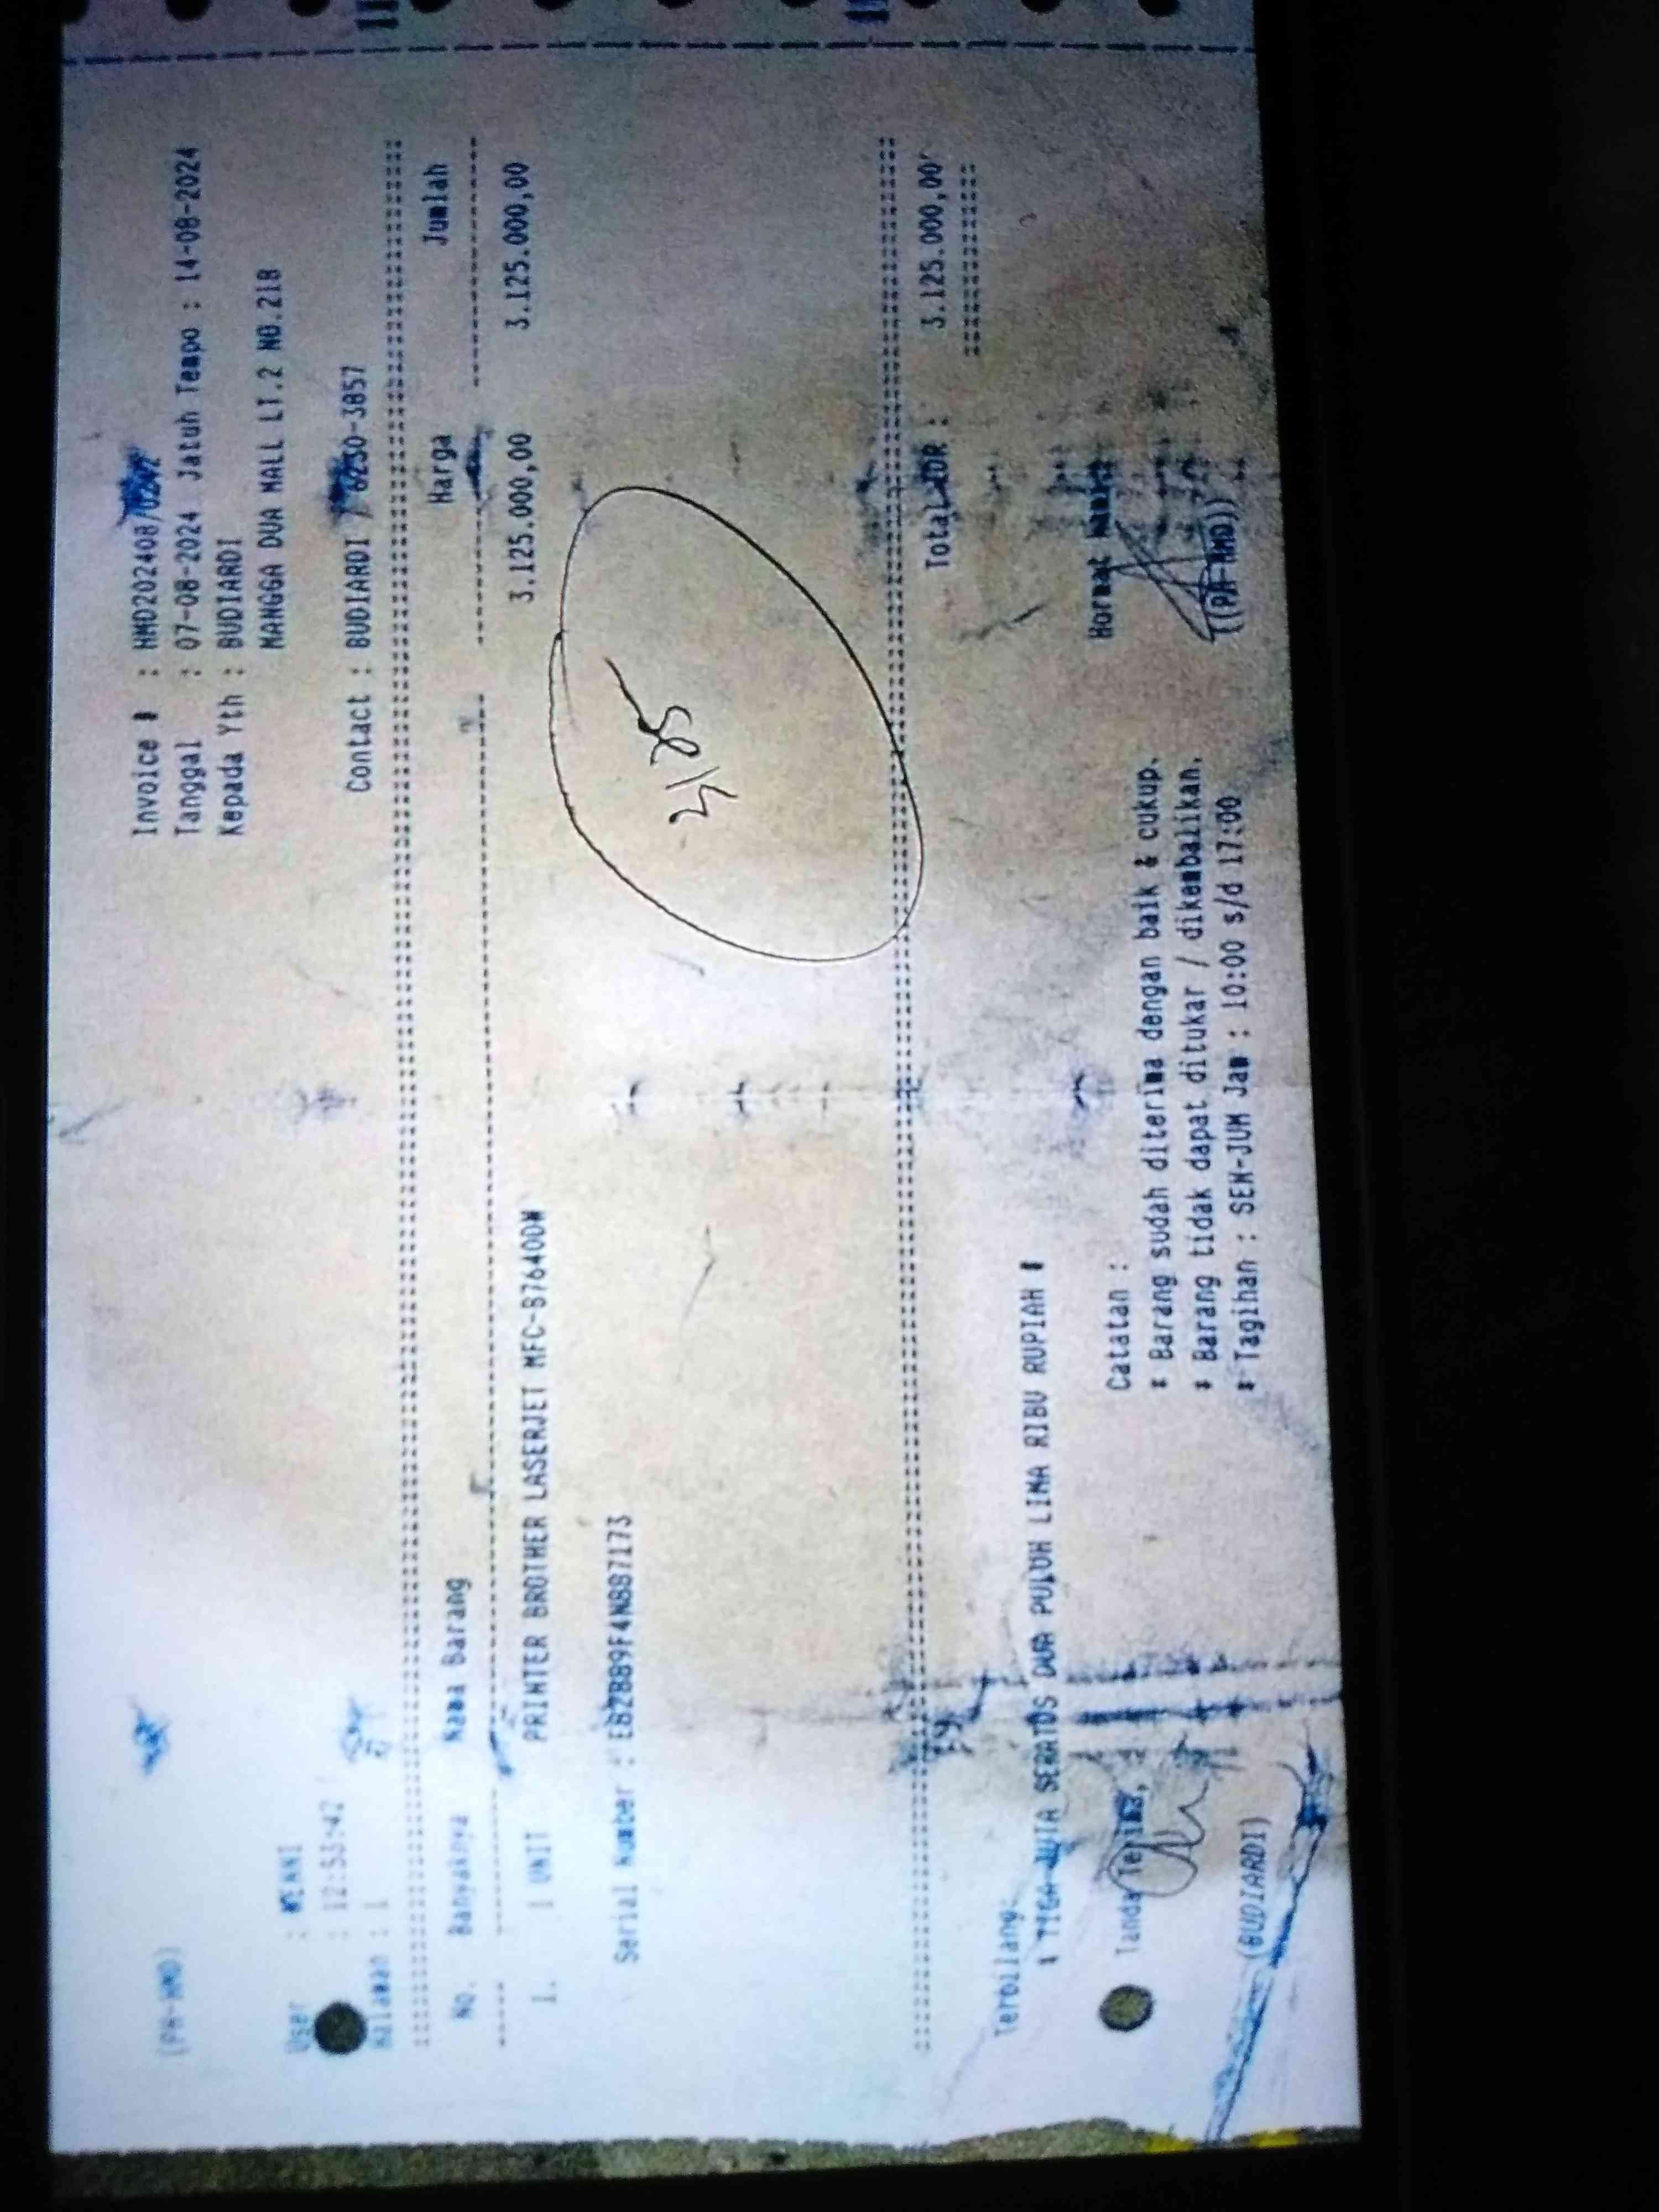 (PH-HMD)
Invoice # : HMD202408/
Tanggal : 07-08-2024 Jatuh Tempo : 14-08-2024
Kepada Yth : BUDIARDI
MANGGA DUA MALL LT.2 NO.21B
User : WENNI
: 12:53:42
Halaman : 1
Contact : BUDIARDI / 6230-3857
No. Banyaknya Nama Barang Harga Jumlah
1. 1 UNIT PRINTER BROTHER LASERJET MFC-B7640DW 3.125.000,00 3.125.000,00
Serial Number : E82889F4N887173
Total IDR : 3.125.000,00
Terbilang:
# TIGA JUTA SERATUS DUA PULUH LIMA RIBU RUPIAH #
Tanda Terima,
Catatan :
* Barang sudah diterima dengan baik & cukup.
* Barang tidak dapat ditukar / dikembalikan.
* Tagihan : SEN-JUM Jam : 10:00 s/d 17:00
Hormat Kami,
(BUDIARDI)
((PH-HMD))